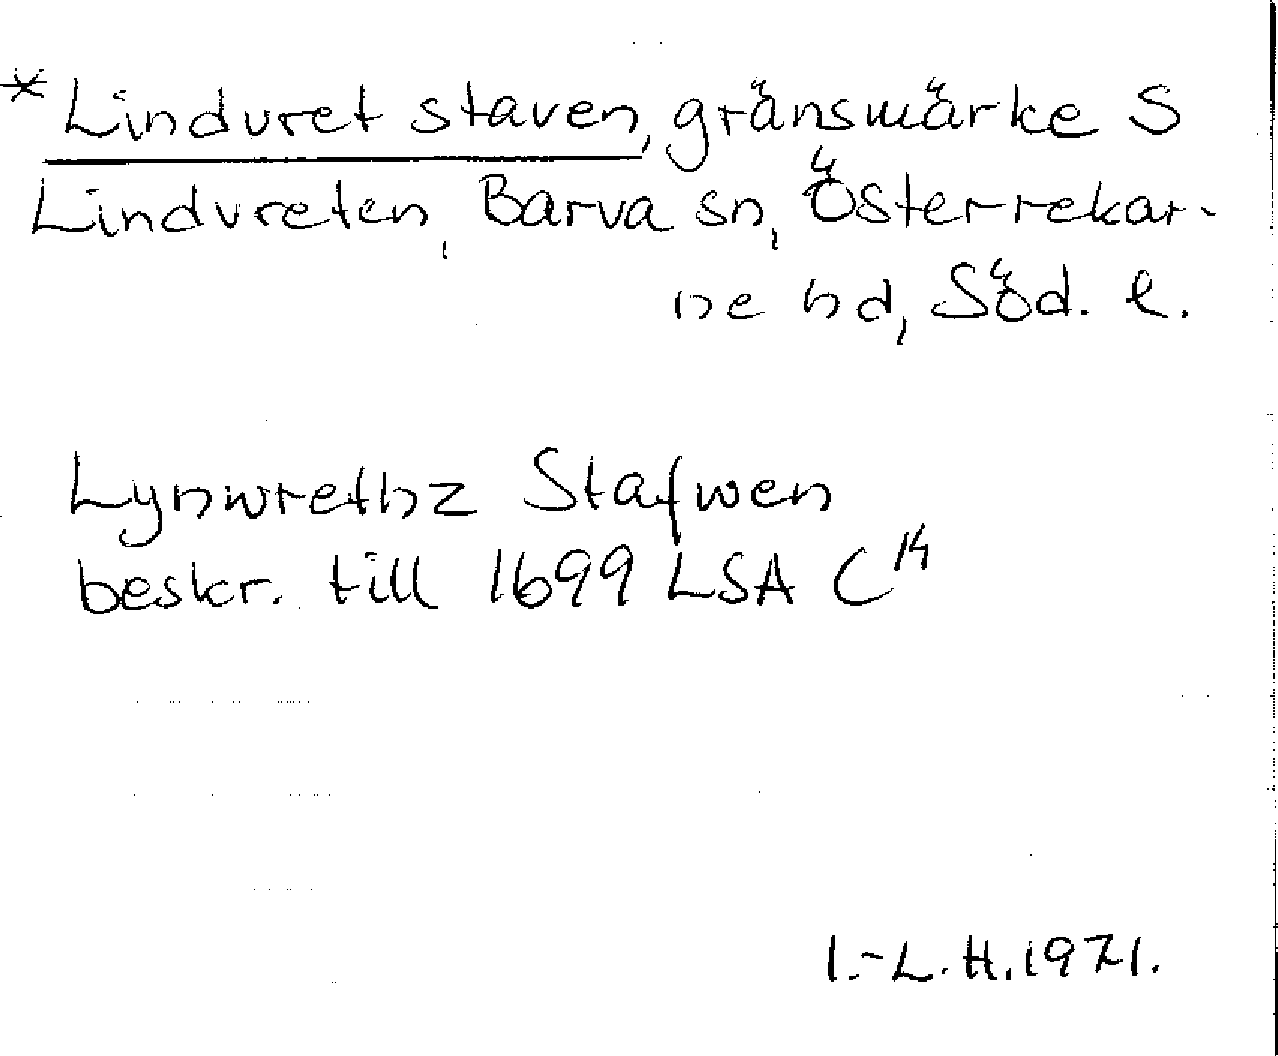 *Lindvret staven, gränsmärke S
Lindvreten, Barva sn, Österrekar-
ne hd, Söd. l.
Lynwrethz Stafwen
beskr. till 1699 LSA C14
I.-L. H. 1971.